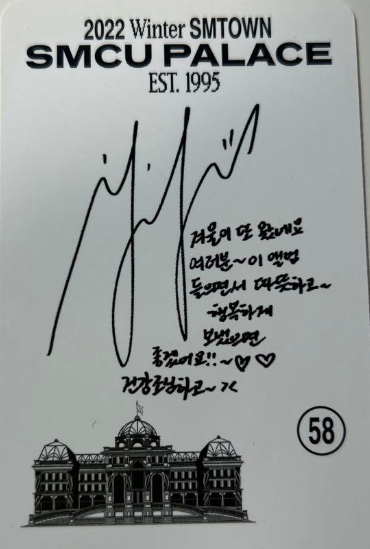 2022 Winter SMTOWN
SMCU PALACE
EST. 1995
겨울이 또 왔네요
여러분~ 이 앨범
들으면서 따뜻하고~
행복하게
보냈으면
좋겠어요!!~♡♡
건강조심하고~ ㅈㅅ
58